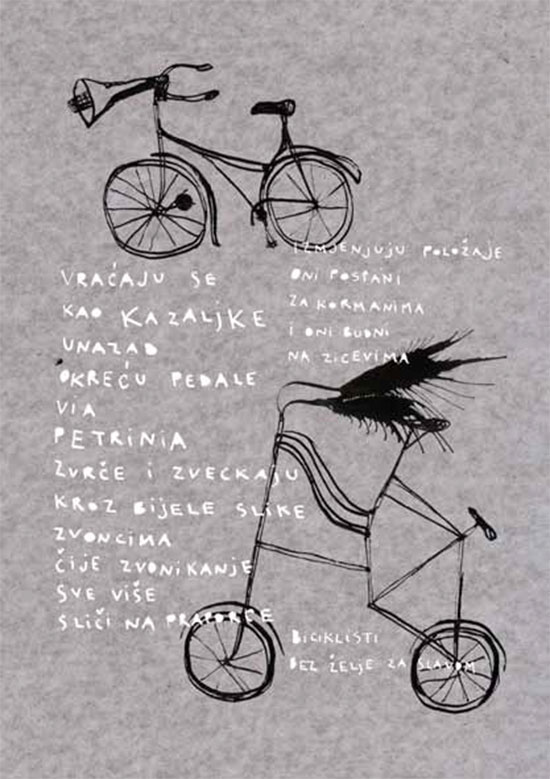 VRAĆAJU SE
KAO KAZALJKE
UNAZAD
OKREĆU PEDALE
VIA
PETRINIA
ZVRČE I ZVECKAJU
KROZ BIJELE SLIKE
ZVONCIMA
ČIJE ZVONIKANJE
SVE VIŠE
SLIČI NA PRAPORCE
IZMJENJUJU POLOŽAJE
ONI POSPANI
ZA KORMANIMA
I ONI BUDNI
NA ZICEVIMA
BICIKLISTI
BEZ ŽELJE ZA SLAVOM